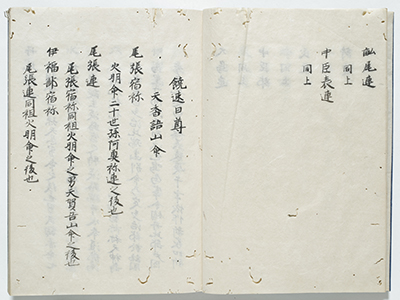 尾連
同上
中臣表連
同上
饒速日尊
天香語山命
尾張宿祢
火明命二十世孫阿曽祢連之後也
尾張連
尾張宿祢同祖火明命之男天賀吾山命之後也
伊福部宿祢
尾張連同祖火明命之後也